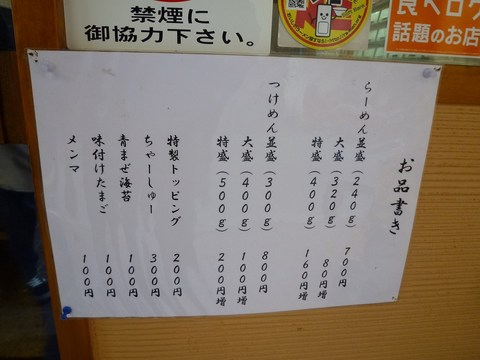 禁煙に
御協力下さい。
食べログ
話題のお店
お品書き
らーめん並盛(240g) 700円
大盛(320g) 80円増
特盛(400g) 160円増
つけめん並盛(300g) 800円
大盛(400g) 100円増
特盛(500g) 200円増
特製トッピング 200円
ちゃーしゅー 300円
青まぜ海苔 100円
味付けたまご 100円
メンマ 100円